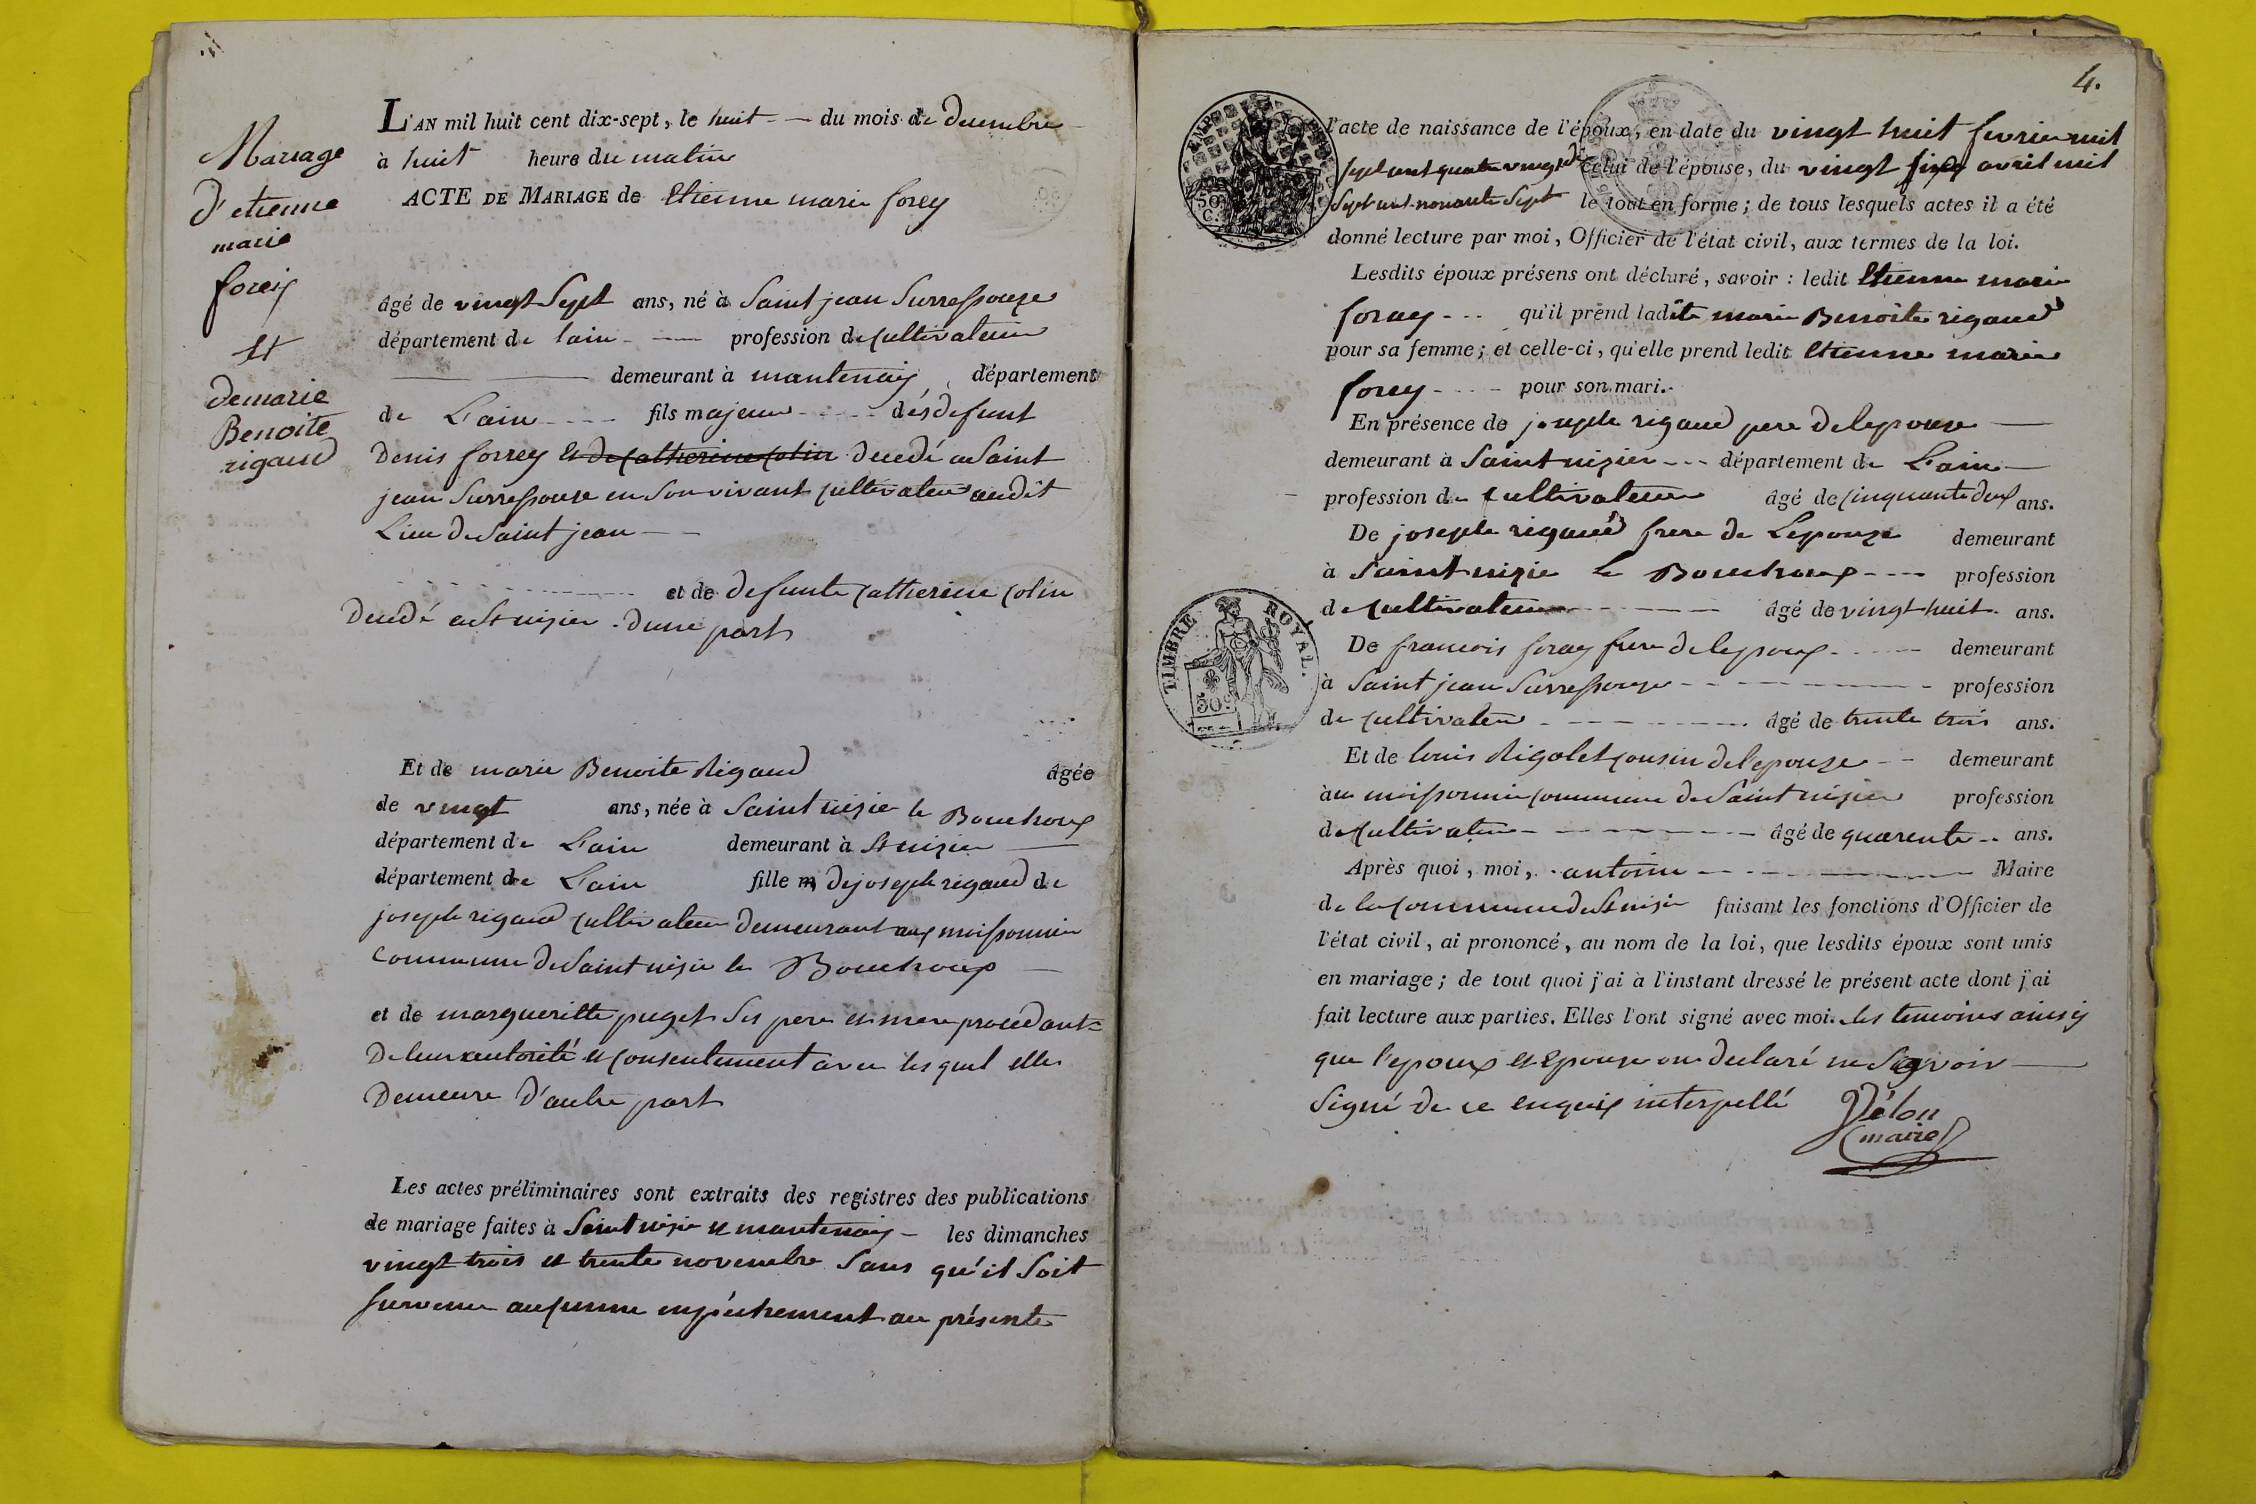 Mariage
d'etienne
marie
forey
et
de marie
Benoite
rigaud
L'AN mil huit cent dix-sept, le huit - - du mois de decembre
à huit heure du matin
ACTE DE MARIAGE de Etienne marie forey
âgé de vingt Sept ans, né à Saint jean Surressouze
département de lain - - profession de cultivateur
demeurant à mantenay, département
de Lain - - - - fils majeur - - - - - dés defunt
Denis forrey et de catherine colin decedé a Saint
jean Surressouse en Son vivant cultivateur audit
Lieu de Saint jean - -
et de defunte catherine colin
Decedé a St nizier . dune part
Et de marie Benoite Rigaud âgée
de vingt ans, née à Saint nizie le Bouchoux
département de Lain demeurant à St nizier
département de Lain fille m de joseph rigaud de
joseph rigaud cultivateur demeurant aux moissonnier
commune de Saint nizie le Bouchoux
et de margueritte puget Ses pere et mere procedante
De leur autorité et consentement avec les quel elle
Demeure D'autre part
Les actes préliminaires sont extraits des registres des publications
de mariage faites à Saint nizie et mantenay - les dimanches
vingt trois et trente novembre Sans qu'il Soit
Survenu aucunne enpéchement au présente
4.
l'acte de naissance de l'époux, en date du vingt huit fevrier mil
Sept cent quatre vingt dix celui de l'épouse, du vingt six avril mil
Sept cent nonante Sept le tout en forme ; de tous lesquels actes il a été
donné lecture par moi, Officier de l'état civil, aux termes de la loi.
Lesdits époux présens ont déclaré, savoir : ledit Etienne marie
foray - - - qu'il prend ladite marie Benoite rigaud
pour sa femme ; et celle-ci, qu'elle prend ledit Etienne marie
forey - - - - pour son mari.
En présence de joseph rigaud pere de lepouse
demeurant à Saint nizier - - - département de Lain
profession de cultivateur âgé de cinquante deux ans.
De joseph rigaud frere de Lepouze demeurant
à Saint nizie le Bouchoux - - - - profession
de cultivateur - - - - - âgé de vingt huit ans.
De francois foray frere de lepoux - - - - - demeurant
à Saint jean Surressouze - - - - - profession
de cultivateur - - - - - âgé de trente trois ans.
Et de louis Rigolet cousin de lepouze - - demeurant
àu moissonnie commune de Saint nizier profession
de cultivateur - - - - - âgé de quarente - - ans.
Après quoi, moi, antoine - - - - - Maire
de la commune de St nizie faisant les fonctions d'Officier de
l'état civil, ai prononcé, au nom de la loi, que lesdits époux sont unis
en mariage ; de tout quoi j'ai à l'instant dressé le présent acte dont j'ai
fait lecture aux parties. Elles l'ont signé avec moi. les temoins ainsy
que l'epoux et Epouse on declaré ne Sçavoir
Signé de ce enquix interpellé
Vélon
maire
TIMBRE ROYAL.
50
C.